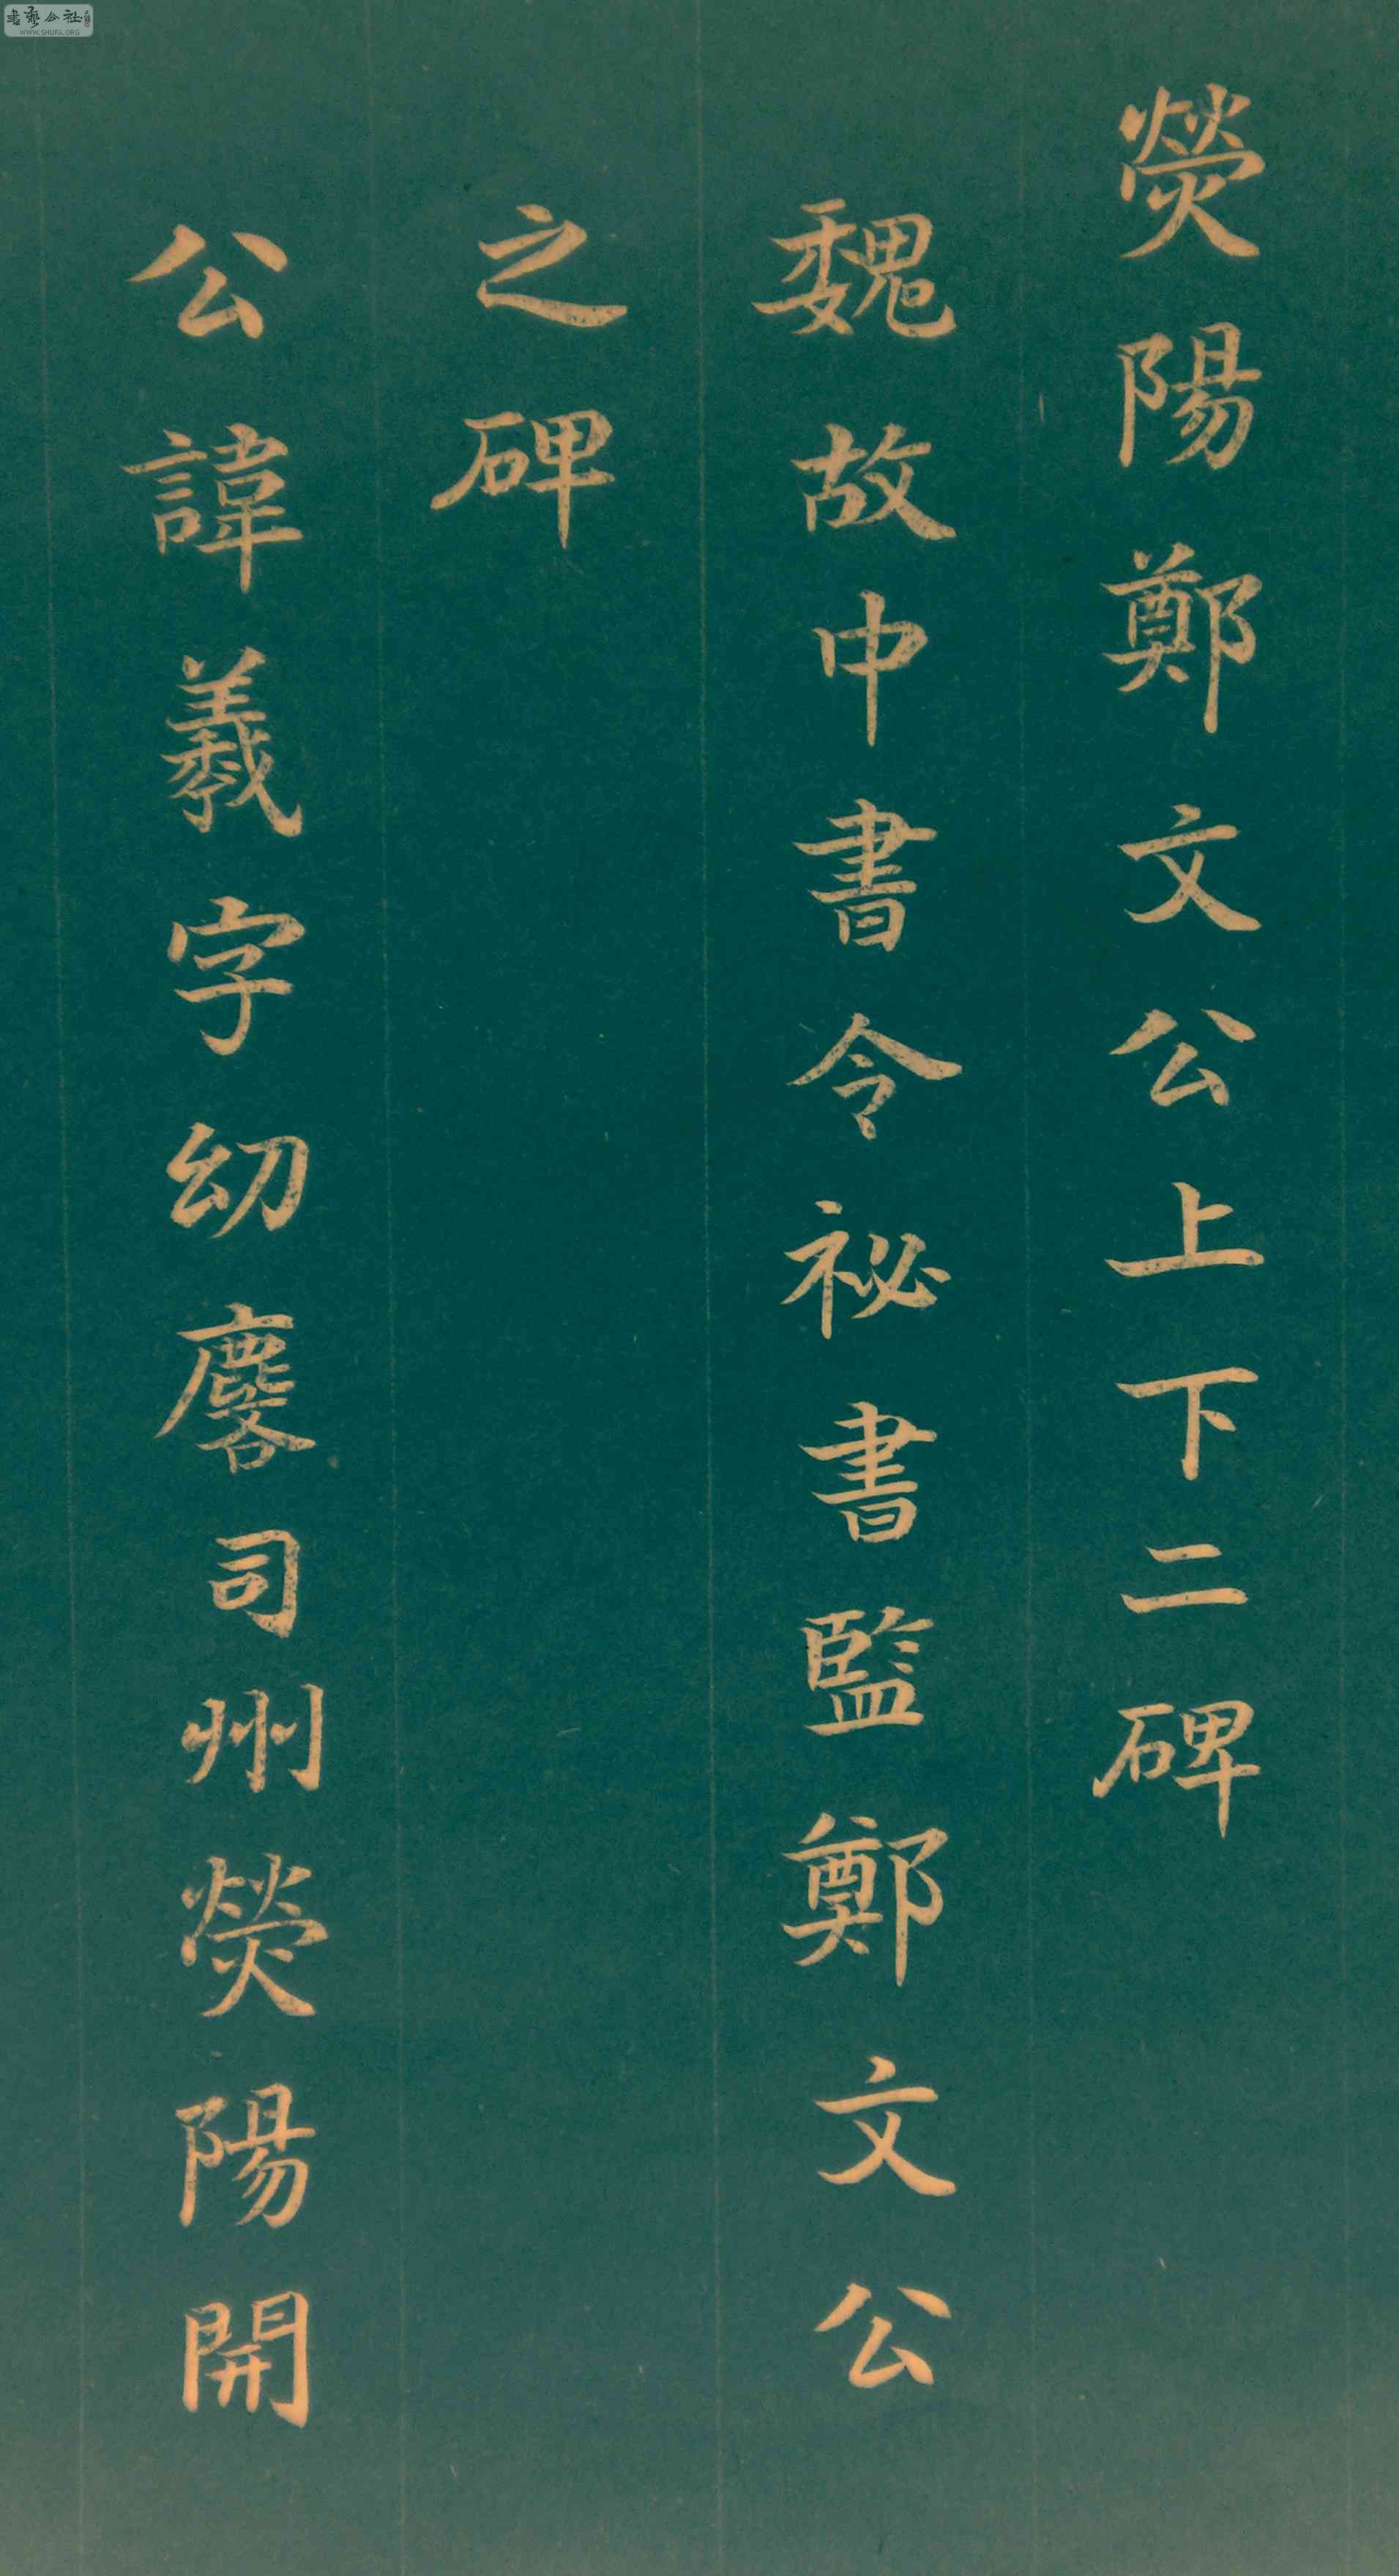 熒陽鄭文公上下二碑
魏故中書令祕書監鄭文公
之碑
公諱羲字幼麐司州熒陽開
書藝公社
WWW.SHUFA.ORG